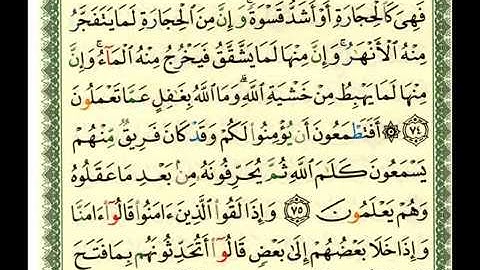 فَهِىَ كَٱلْحِجَارَةِ أَوْ أَشَدُّ قَسْوَةً ۚ وَإِنَّ مِنَ ٱلْحِجَارَةِ لَمَا يَتَفَجَّرُ
مِنْهُ ٱلْأَنْهَٰرُ ۚ وَإِنَّ مِنْهَا لَمَا يَشَّقَّقُ فَيَخْرُجُ مِنْهُ ٱلْمَآءُ ۚ وَإِنَّ
مِنْهَا لَمَا يَهْبِطُ مِنْ خَشْيَةِ ٱللَّهِ ۗ وَمَا ٱللَّهُ بِغَٰفِلٍ عَمَّا تَعْمَلُونَ
٧٤ ۞ أَفَتَطْمَعُونَ أَن يُؤْمِنُوا۟ لَكُمْ وَقَدْ كَانَ فَرِيقٌ مِّنْهُمْ
يَسْمَعُونَ كَلَٰمَ ٱللَّهِ ثُمَّ يُحَرِّفُونَهُۥ مِنۢ بَعْدِ مَا عَقَلُوهُ
وَهُمْ يَعْلَمُونَ ٧٥ وَإِذَا لَقُوا۟ ٱلَّذِينَ ءَامَنُوا۟ قَالُوٓا۟ ءَامَنَّا
وَإِذَا خَلَا بَعْضُهُمْ إِلَىٰ بَعْضٍ قَالُوٓا۟ أَتُحَدِّثُونَهُم بِمَا فَتَحَ